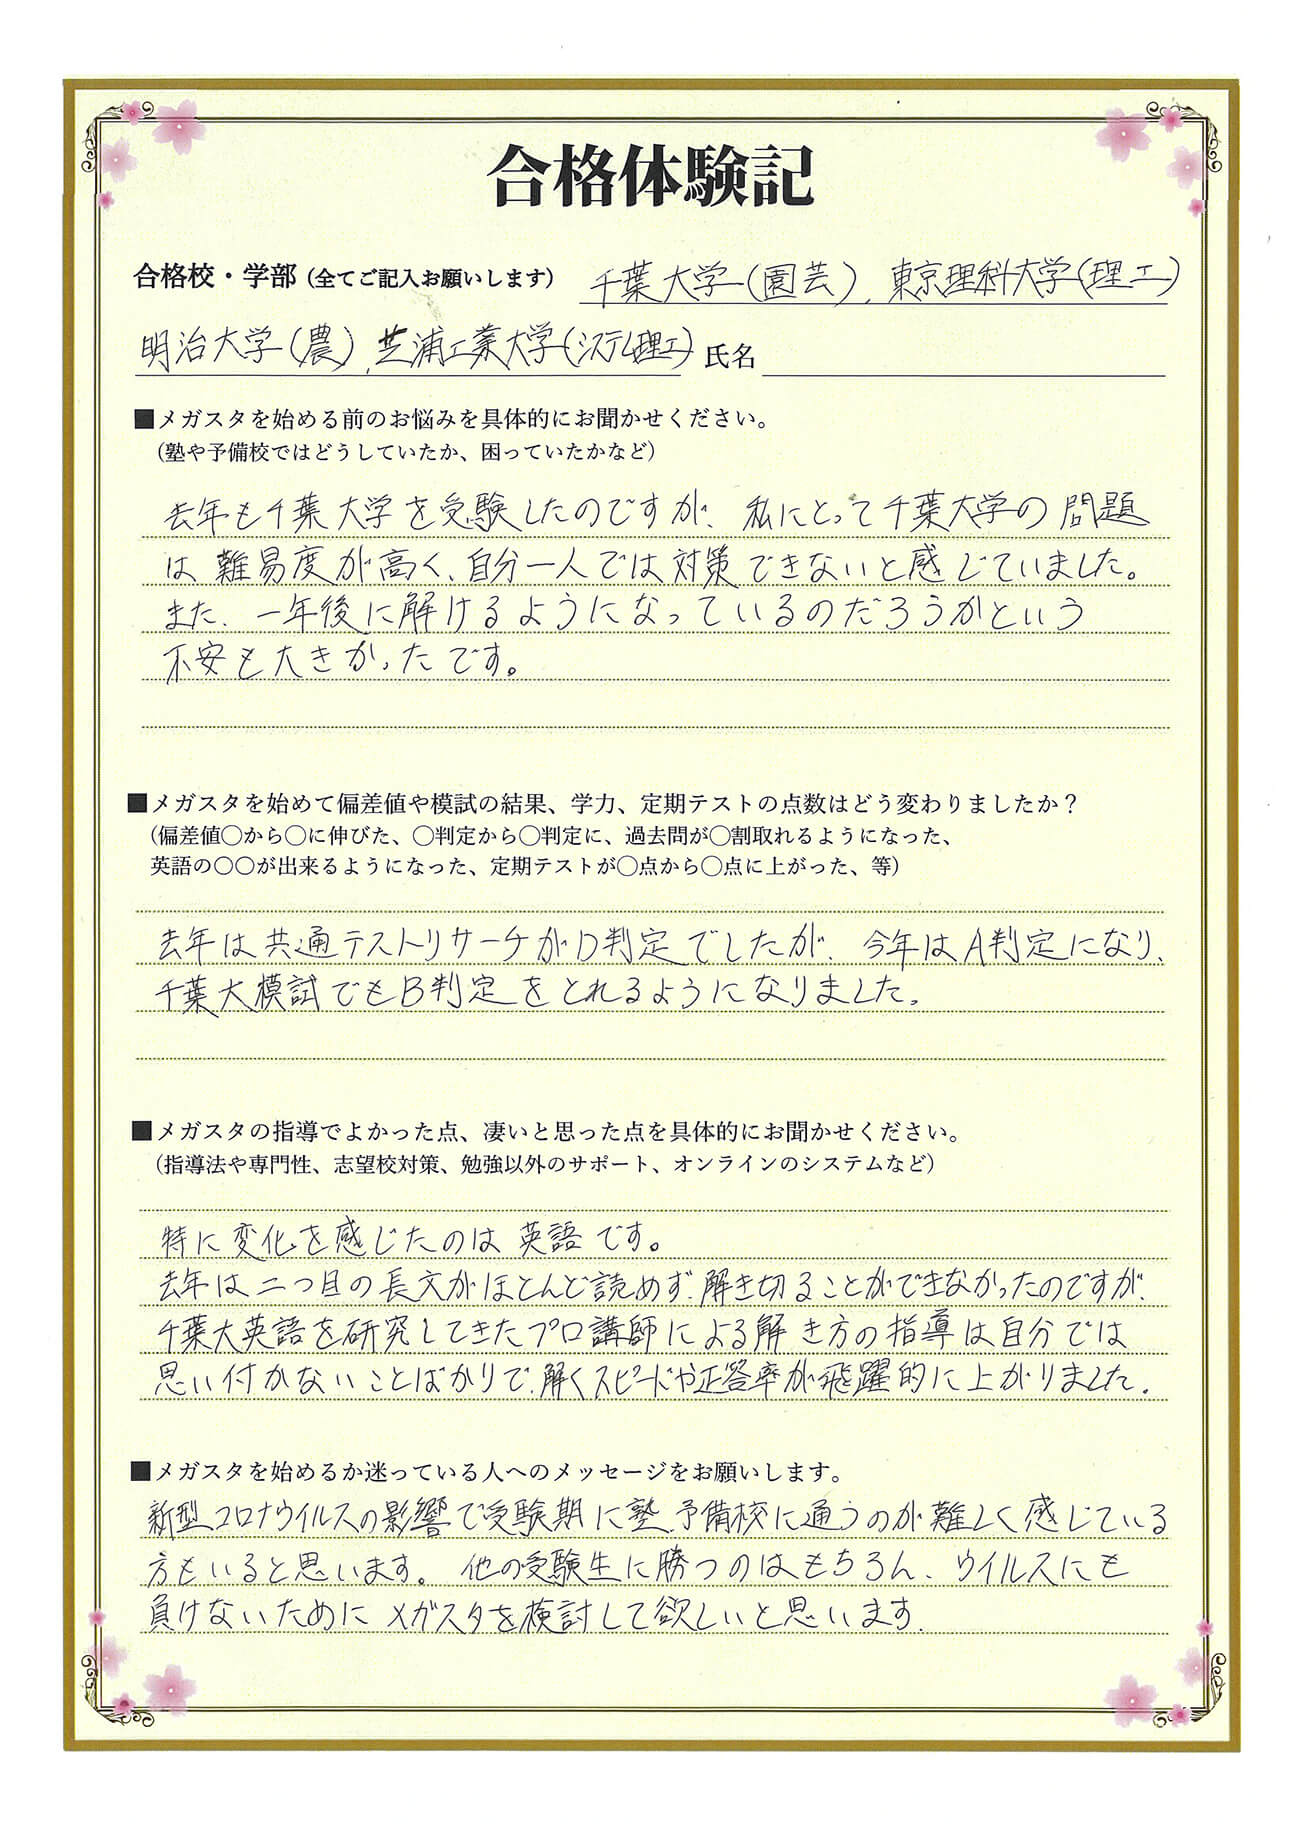 合格体験記
合格校・学部（全てご記入お願いします） 千葉大学(園芸)、東京理科大学(理工)
明治大学(農)、芝浦工業大学(システム理工) 氏名
■メガスタを始める前のお悩みを具体的にお聞かせください。
（塾や予備校ではどうしていたか、困っていたかなど）
去年も千葉大学を受験したのですが、私にとって千葉大学の問題
は難易度が高く、自分一人では対策できないと感じていました。
また、一年後に解けるようになっているのだろうかという
不安も大きかったです。
■メガスタを始めて偏差値や模試の結果、学力、定期テストの点数はどう変わりましたか？
（偏差値〇から〇に伸びた、〇判定から〇判定に、過去問が〇割取れるようになった、
英語の〇〇が出来るようになった、定期テストが〇点から〇点に上がった、等）
去年は共通テストリサーチがD判定でしたが、今年はA判定になり、
千葉大模試でもB判定をとれるようになりました。
■メガスタの指導でよかった点、凄いと思った点を具体的にお聞かせください。
（指導法や専門性、志望校対策、勉強以外のサポート、オンラインのシステムなど）
特に変化を感じたのは英語です。
去年は二つ目の長文がほとんど読めず、解き切ることができなかったのですが、
千葉大英語を研究してきたプロ講師による解き方の指導は自分では
思い付かないことばかりで、解くスピードや正答率が飛躍的に上がりました。
■メガスタを始めるか迷っている人へのメッセージをお願いします。
新型コロナウイルスの影響で受験期に塾、予備校に通うのが難しく感じている
方もいると思います。他の受験生に勝つのはもちろん、ウイルスにも
負けないためにメガスタを検討して欲しいと思います。